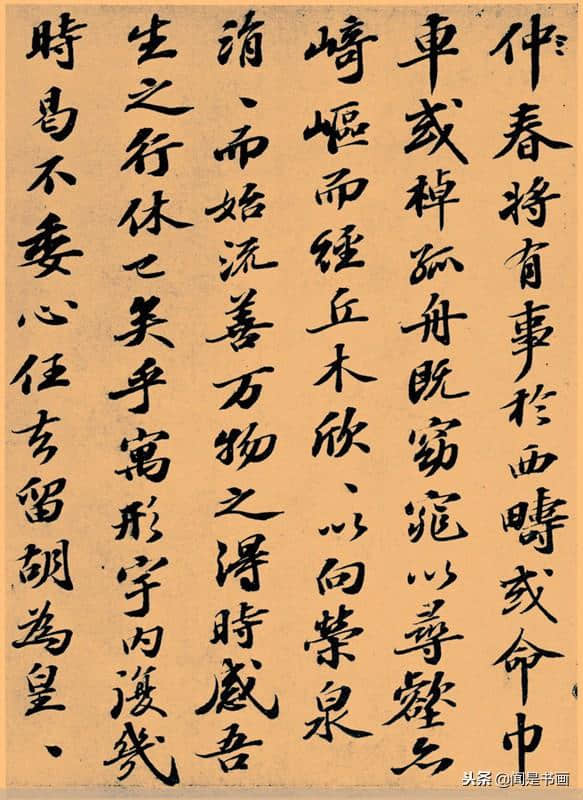 仲春将有事於西疇或命巾
車或棹孤舟既窈窕以尋壑亦
崎嶇而經丘木欣、以向榮泉
涓、而始流善万物之得時感吾
生之行休已矣乎寓形宇内復幾
時曷不委心任去留胡為皇、
头条 @闻是书画